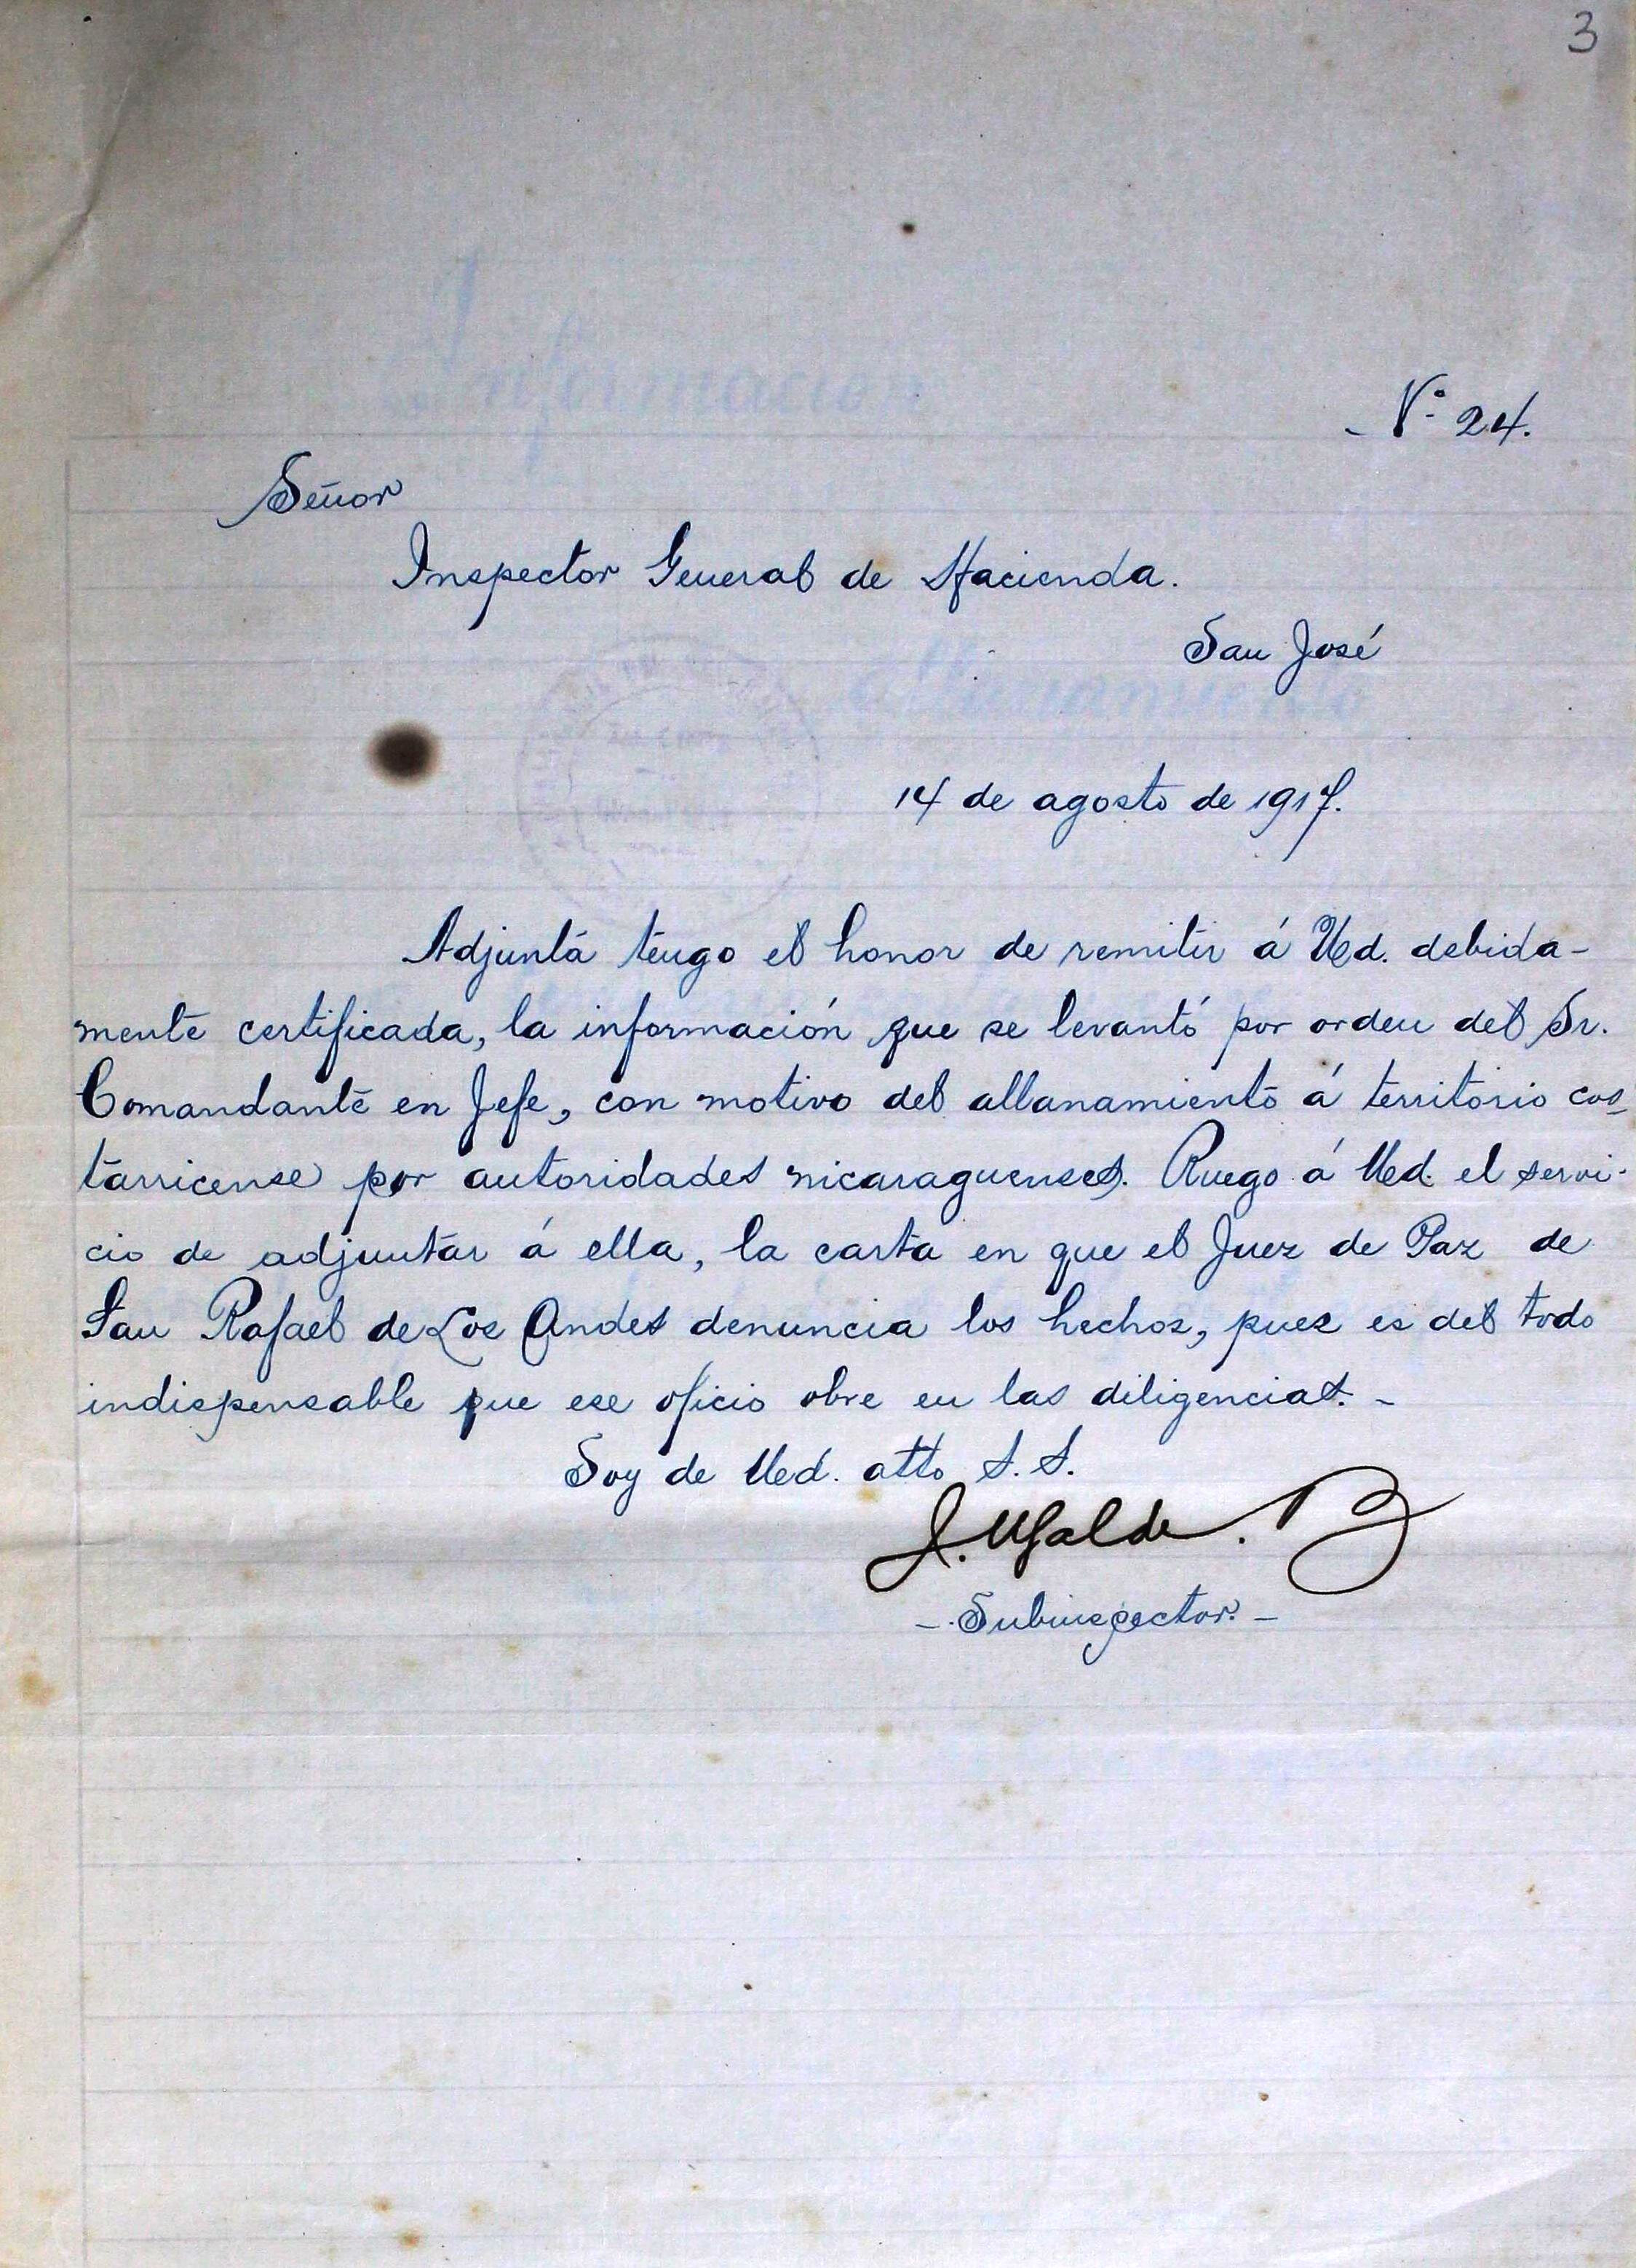 3
- Nº 24.
Señor
Inspector General de Hacienda.
San José
14 de agosto de 1917.
Adjunta tengo el honor de remitir á Ud. debida-
mente certificada, la información que se levantó por orden del Sr.
Comandante en Jefe, con motivo del allanamiento á territorio cos-
tarricense por autoridades nicaraguenses. Ruego á Ud. el servi-
cio de adjuntar á ella, la carta en que el Juez de Paz de
San Rafael de Los Andes denuncia los hechos, pues es del todo
indispensable que ese oficio obre en las diligencias. -
Soy de Ud. atto S. S.
J. Ugalde. B
- Subinspector. -
Información
Allanamiento